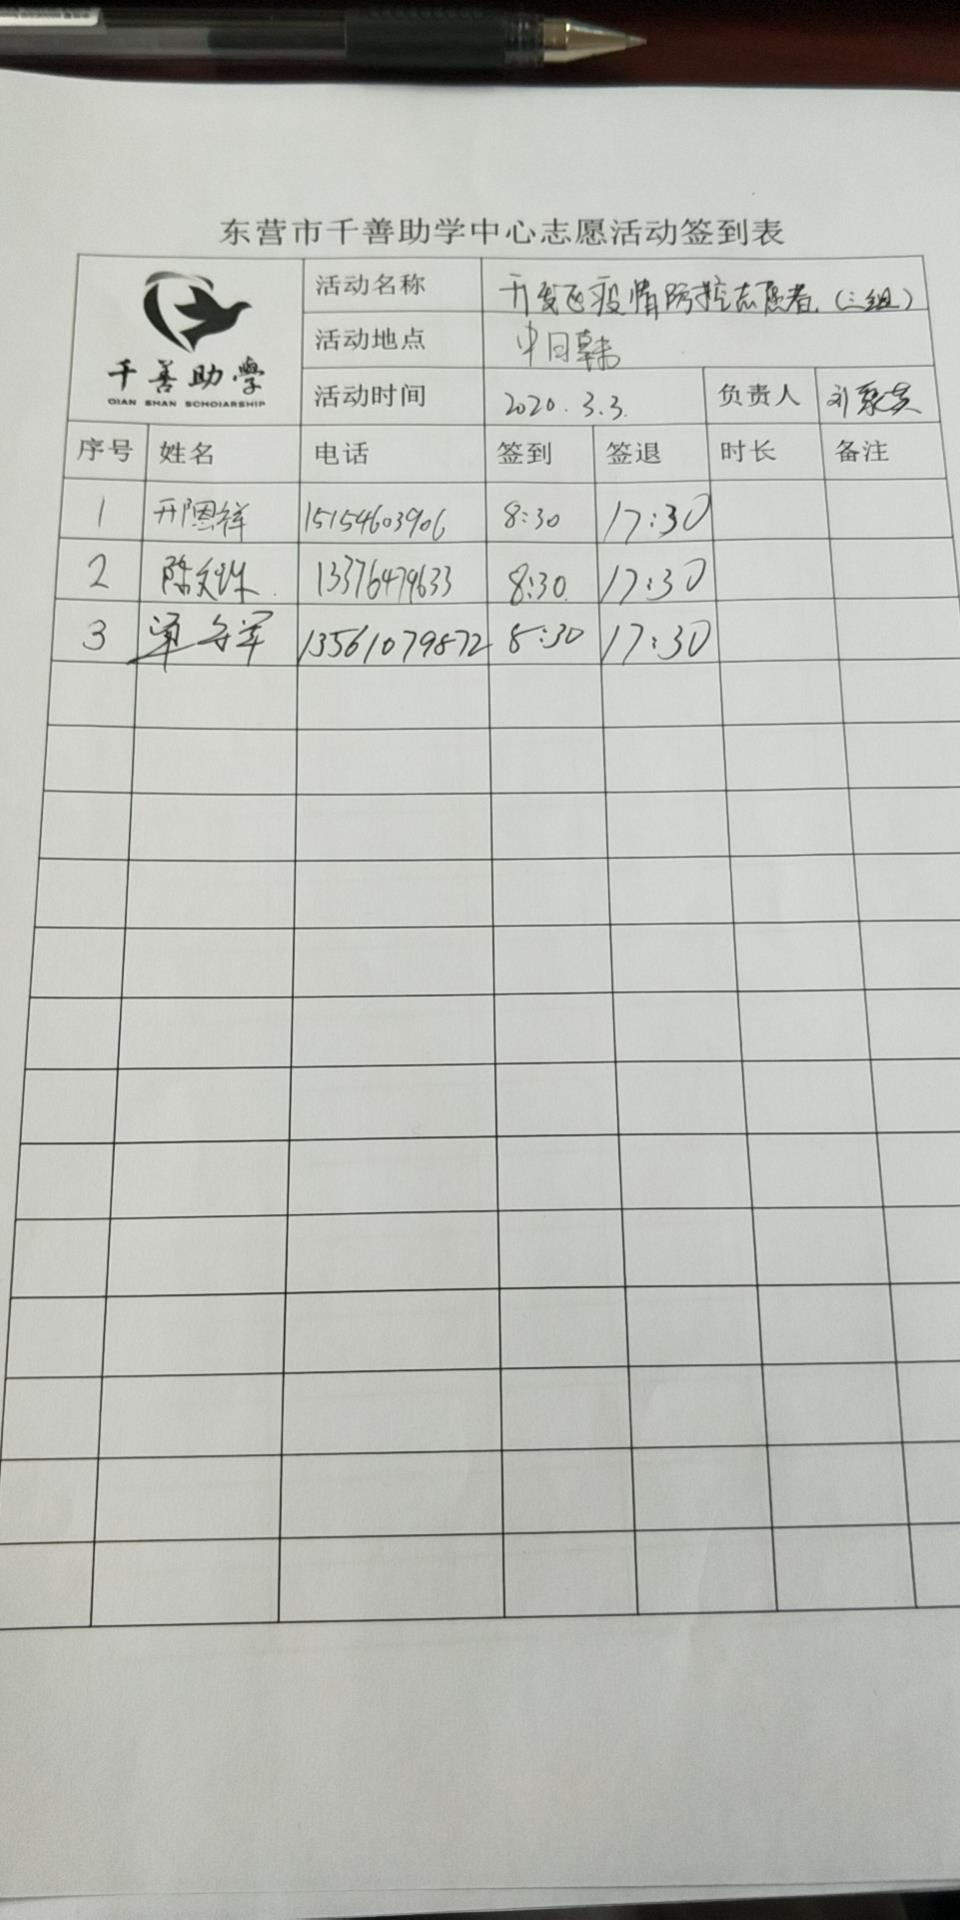 东营市千善助学中心志愿活动签到表
千善助學
QIAN SHAN SCHOLARSHIP
活动名称 开发区疫情防控志愿者（三组）
活动地点 中日韩
活动时间 2020.3.3. 负责人 刘
序号 姓名 电话 签到 签退 时长 备注
1 邢恩祥 15154603906 8:30 17:30
2 陈文 13376479633 8:30 17:30
3 军 13561079872 8:30 17:30